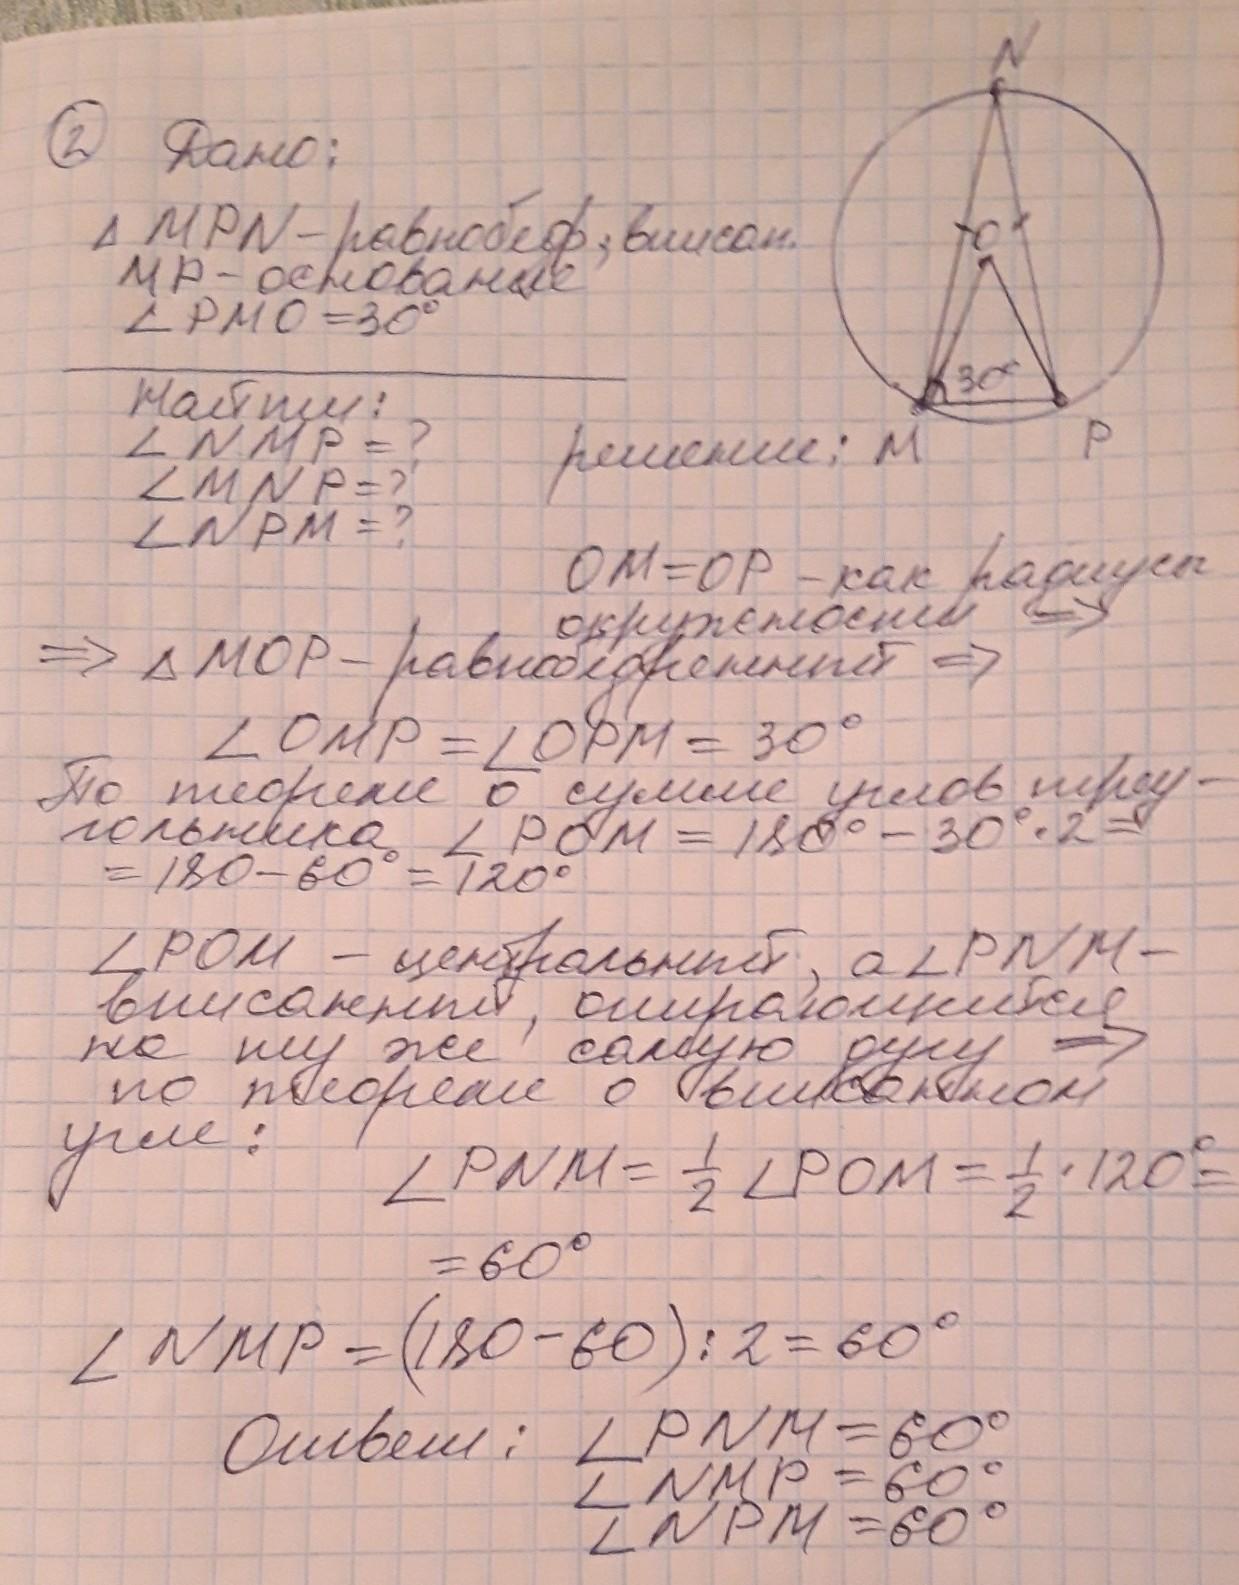 N
② Дано:
△ MPN – равнобедр, вписан.
MP – основание
∠PMO = 30°
O
30°
M
P
Найти:
∠NMP = ?
∠MNP = ?
∠NPM = ?
решение:
OM = OP – как радиусы
окружности ⇒
⇒ △MOP – равнобедренный ⇒
∠OMP = ∠OPM = 30°
По теореме о сумме углов треу-
гольника ∠POM = 180° – 30°·2 =
= 180 – 60° = 120°
∠POM – центральный, а ∠PNM –
вписанный, опирающийся
на ту же самую дугу ⇒
по теореме о вписанном
угле:
∠PNM = 1/2 ∠POM = 1/2 · 120° =
= 60°
∠NMP = (180 – 60) : 2 = 60°
Ответ: ∠PNM = 60°
∠NMP = 60°
∠NPM = 60°